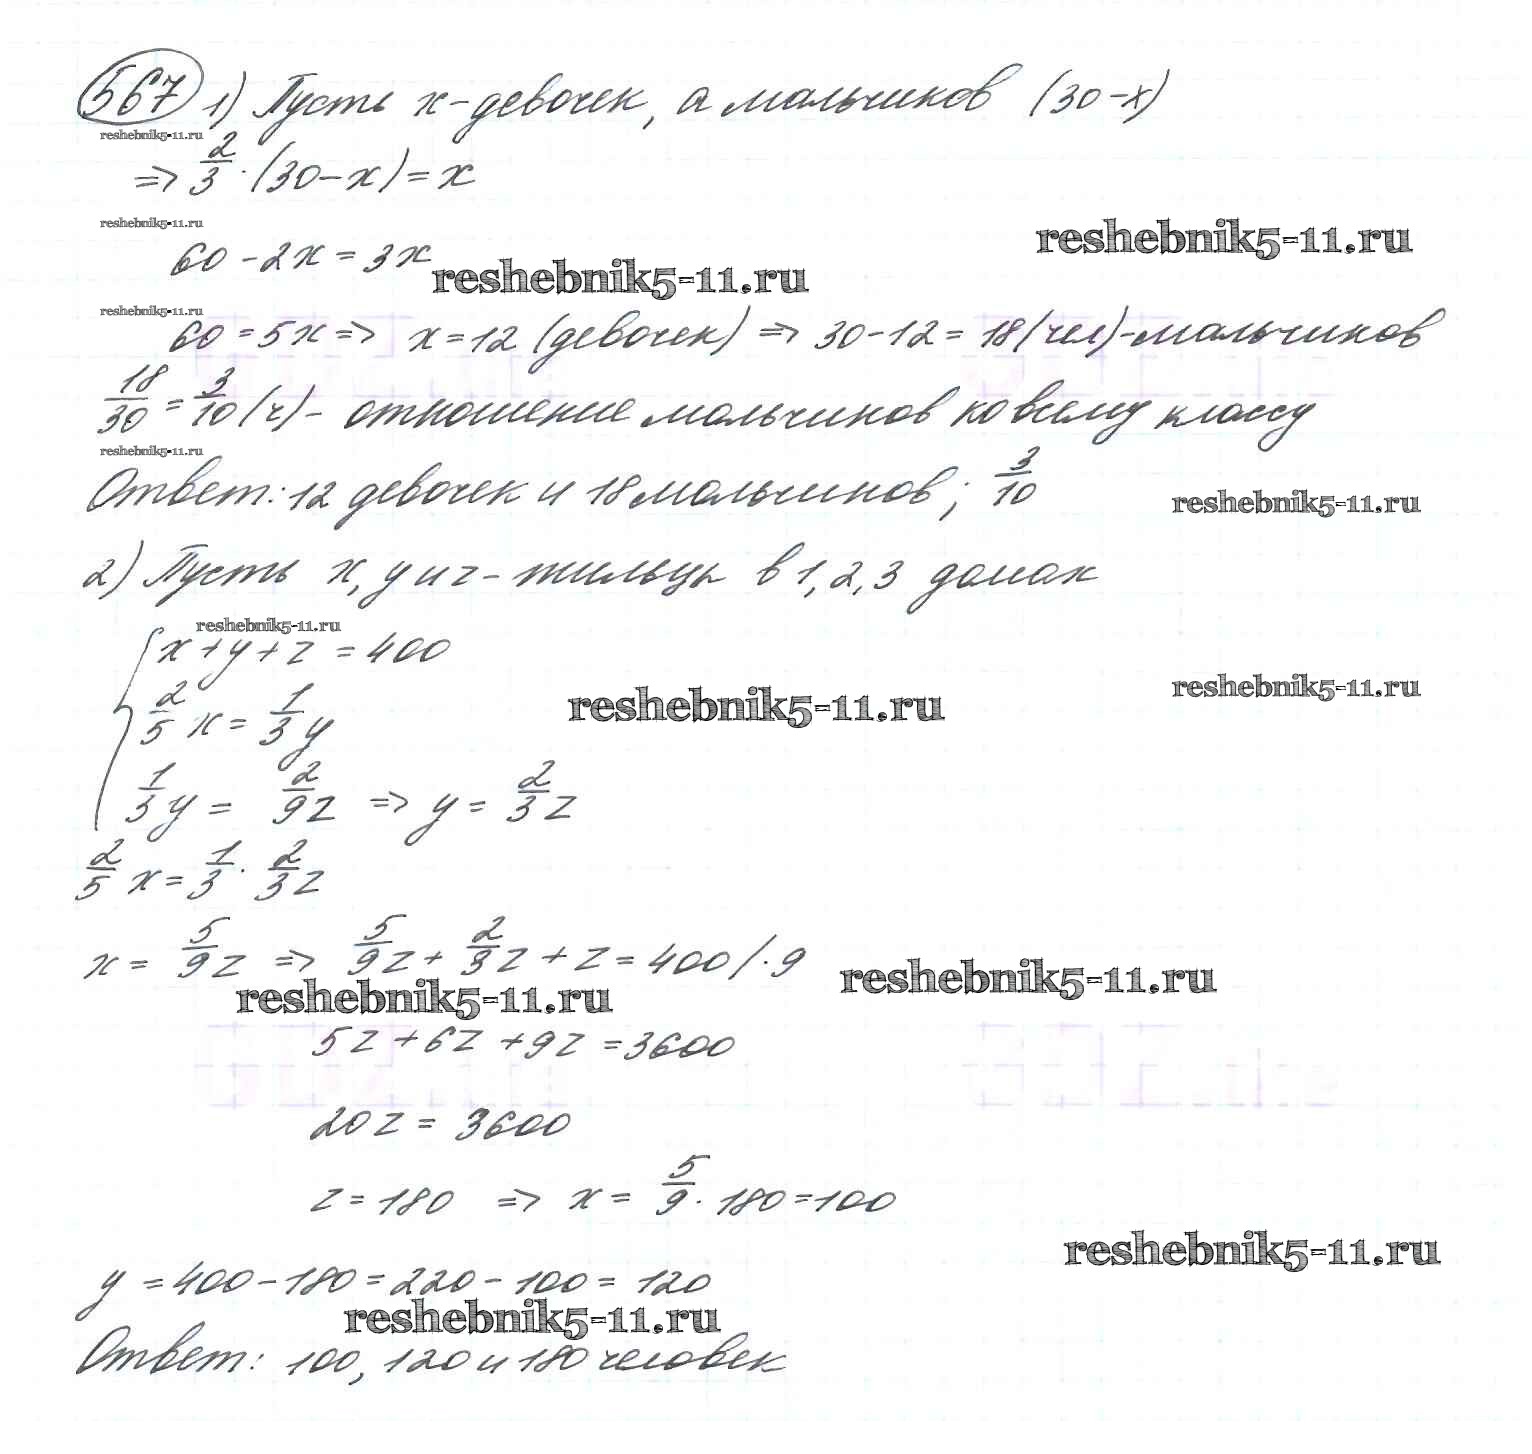 567 1) Пусть x - девочек, а мальчиков (30-x)
reshebnik5-11.ru
=> 2/3 · (30-x) = x
reshebnik5-11.ru
reshebnik5-11.ru
60 - 2x = 3x
reshebnik5-11.ru
reshebnik5-11.ru
60 = 5x => x = 12 (девочек) => 30 - 12 = 18 (чел) - мальчиков
18/30 = 3/10 (ч) - отношение мальчиков ко всему классу
reshebnik5-11.ru
Ответ: 12 девочек и 18 мальчиков; 3/10
reshebnik5-11.ru
2) Пусть x, y и z - жильцы в 1, 2, 3 домах
reshebnik5-11.ru
x + y + z = 400
reshebnik5-11.ru
2/5 x = 1/3 y
reshebnik5-11.ru
1/3 y = 2/9 z => y = 2/3 z
2/5 x = 1/3 · 2/3 z
x = 5/9 z => 5/9 z + 2/3 z + z = 400 / · 9
reshebnik5-11.ru
reshebnik5-11.ru
5z + 6z + 9z = 3600
20z = 3600
z = 180 => x = 5/9 · 180 = 100
reshebnik5-11.ru
y = 400 - 180 = 220 - 100 = 120
reshebnik5-11.ru
Ответ: 100, 120 и 180 человек